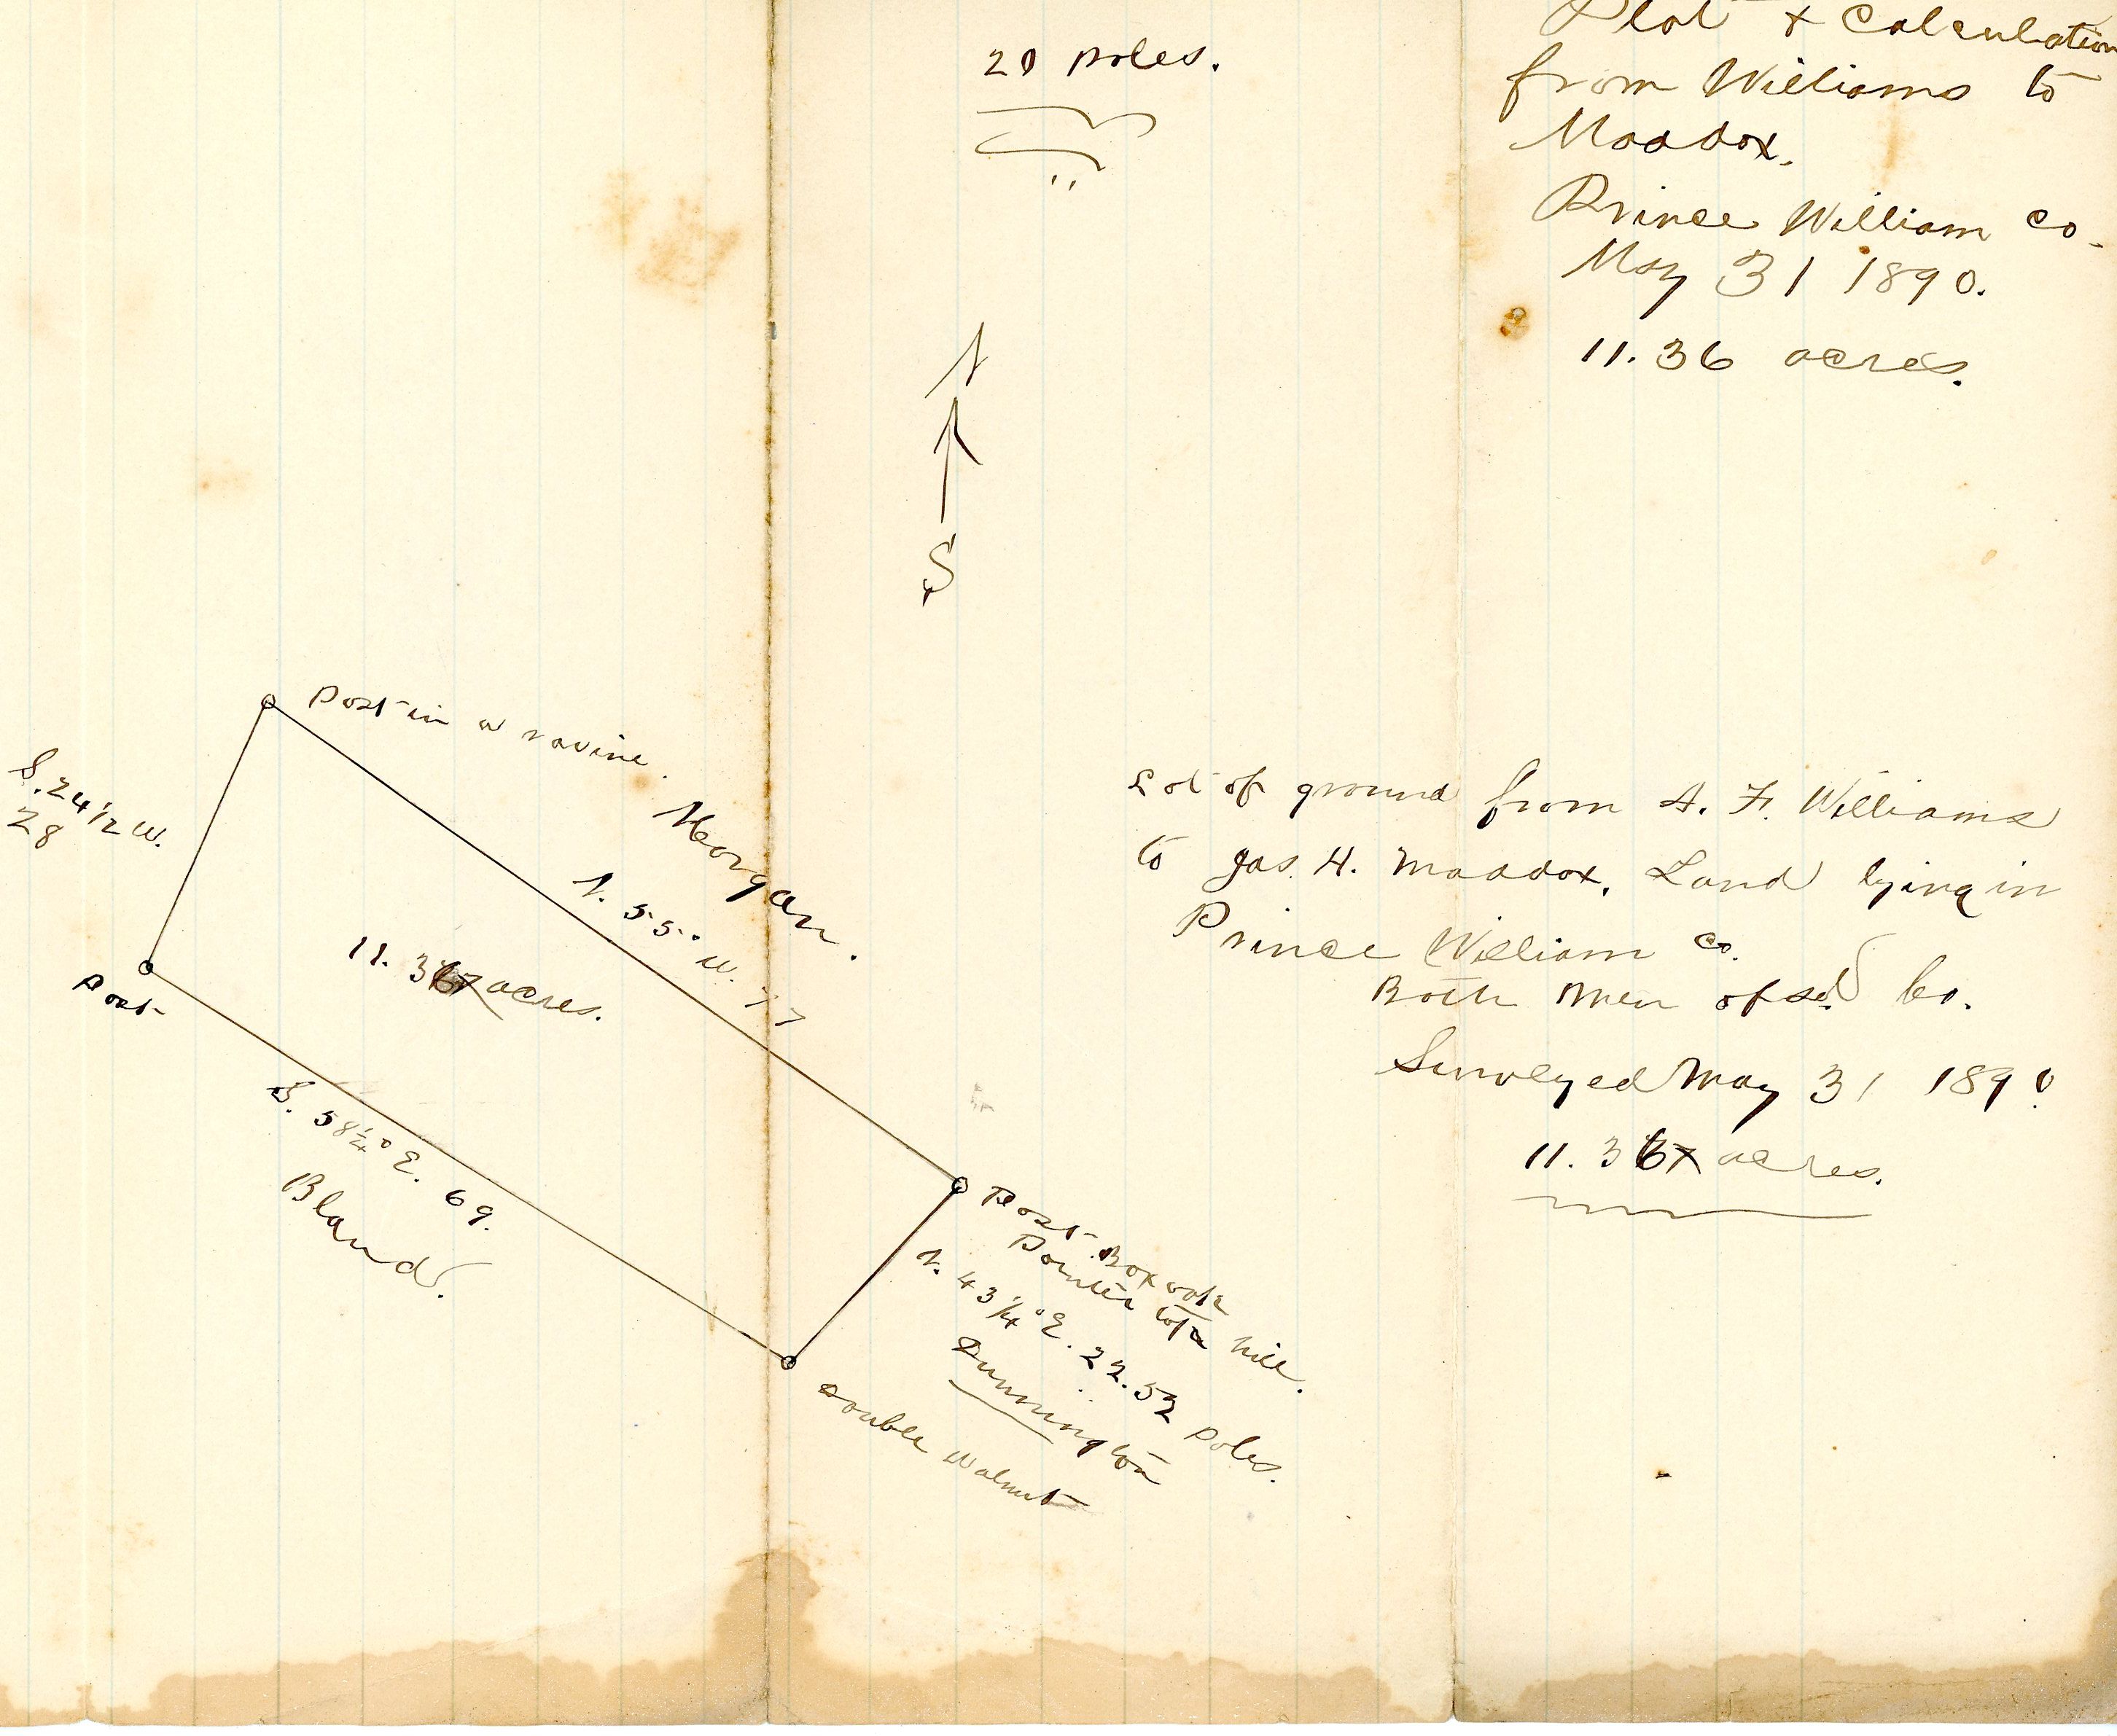 20 poles.
Plat & Calculation
from Williams to
Maddox.
Prince William Co.
May 31 1890.
11.36 acres.
N
S
Post in a ravine.
S. 24 1/2 W.
28
Morgan.
N. 55° W. 77
11. 36 acres.
Post
S. 58 1/4° E. 69.
Bland.
Post. Box oak
Pointer top hill.
N. 43 1/4° E. 22.52 poles.
Dunnington
Double Walnut
Lot of ground from A. F. Williams
to Jas. H. Maddox, Land lying in
Prince William Co.
Both Men of sd. Co.
Surveyed May 31 1890
11. 36 acres.